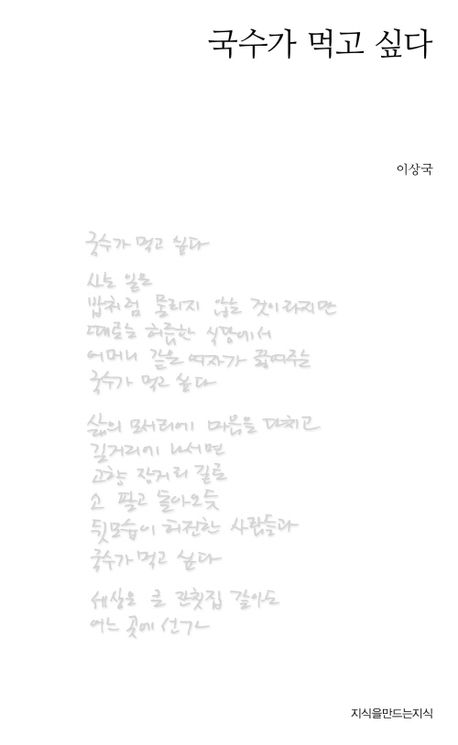 국수가 먹고 싶다
이상국
국수가 먹고 싶다
사는 일은
밥처럼 물리지 않는 것이라지만
때로는 허름한 식당에서
어머니 같은 여자가 끓여주는
국수가 먹고 싶다
삶의 모서리에 마음을 다치고
길거리에 나서면
고향 장거리 길로
소 팔고 돌아오듯
뒷모습이 허전한 사람들과
국수가 먹고 싶다
세상은 큰 잔칫집 같아도
어느 곳에 선가
지식을만드는지식